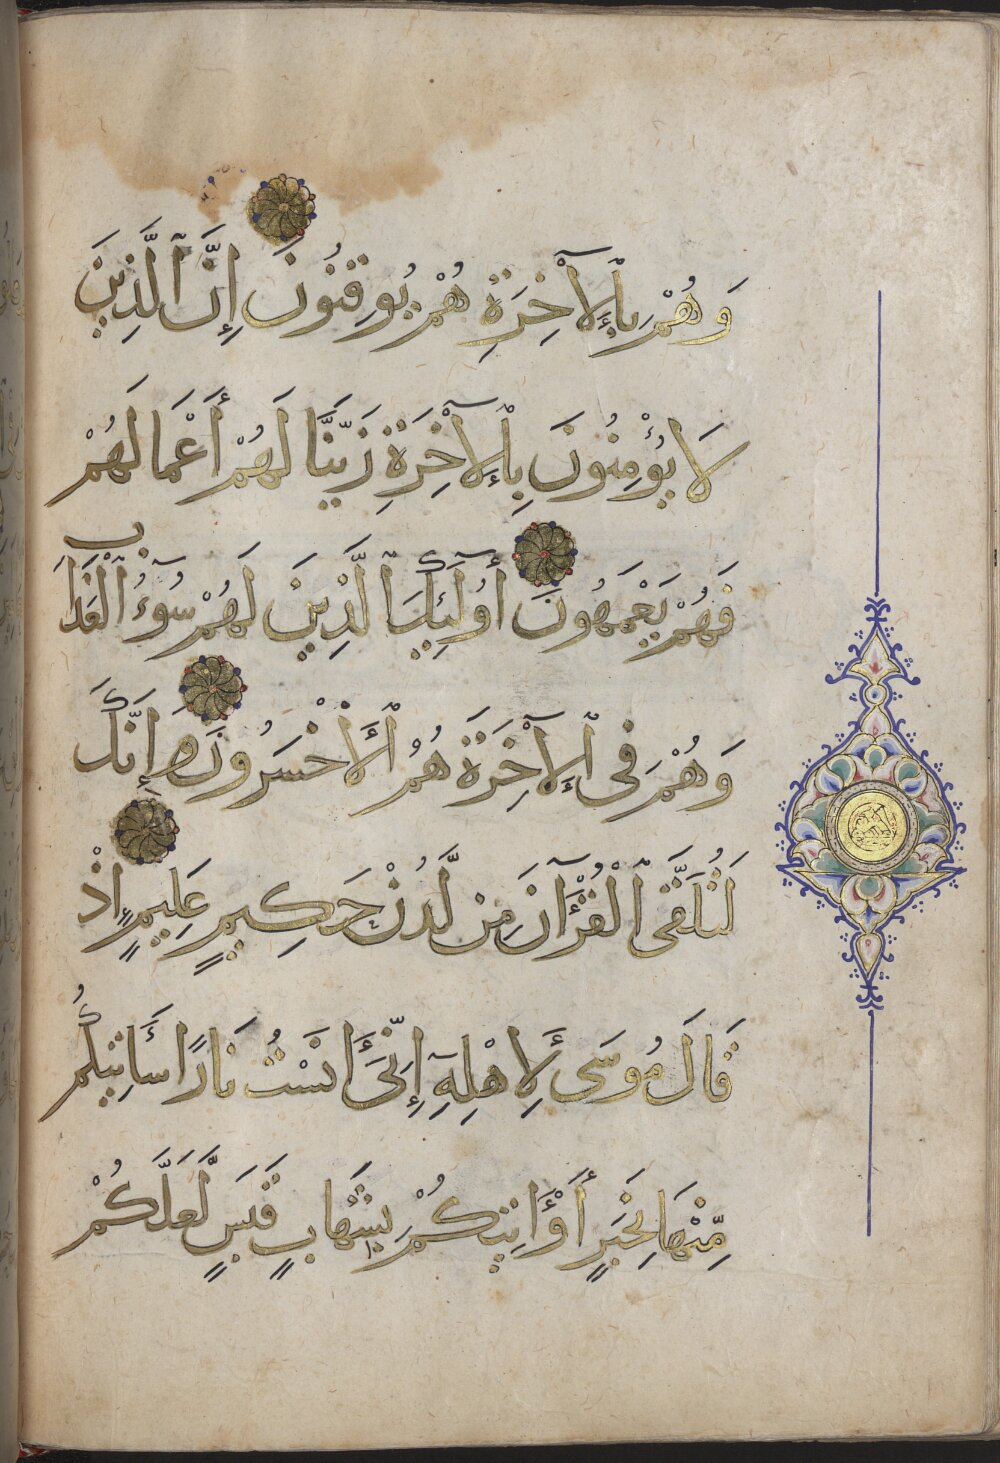 وَهُمْ بِالْآخِرَةِ هُمْ يُوقِنُونَ إِنَّ الَّذِينَ
لَا يُؤْمِنُونَ بِالْآخِرَةِ زَيَّنَّا لَهُمْ أَعْمَالَهُمْ
فَهُمْ يَعْمَهُونَ أُولَٰئِكَ الَّذِينَ لَهُمْ سُوٓءُ الْعَذَابِ
وَهُمْ فِي الْآخِرَةِ هُمُ الْأَخْسَرُونَ وَإِنَّكَ
لَتُلَقَّى الْقُرْآنَ مِن لَّدُنْ حَكِيمٍ عَلِيمٍ إِذْ
قَالَ مُوسَى لِأَهْلِهِ إِنِّي آنَسْتُ نَارًا سَآتِيكُمْ
مِّنْهَا بِخَبَرٍ أَوْ آتِيكُمْ بِشِهَابٍ قَبَسٍ لَّعَلَّكُمْ